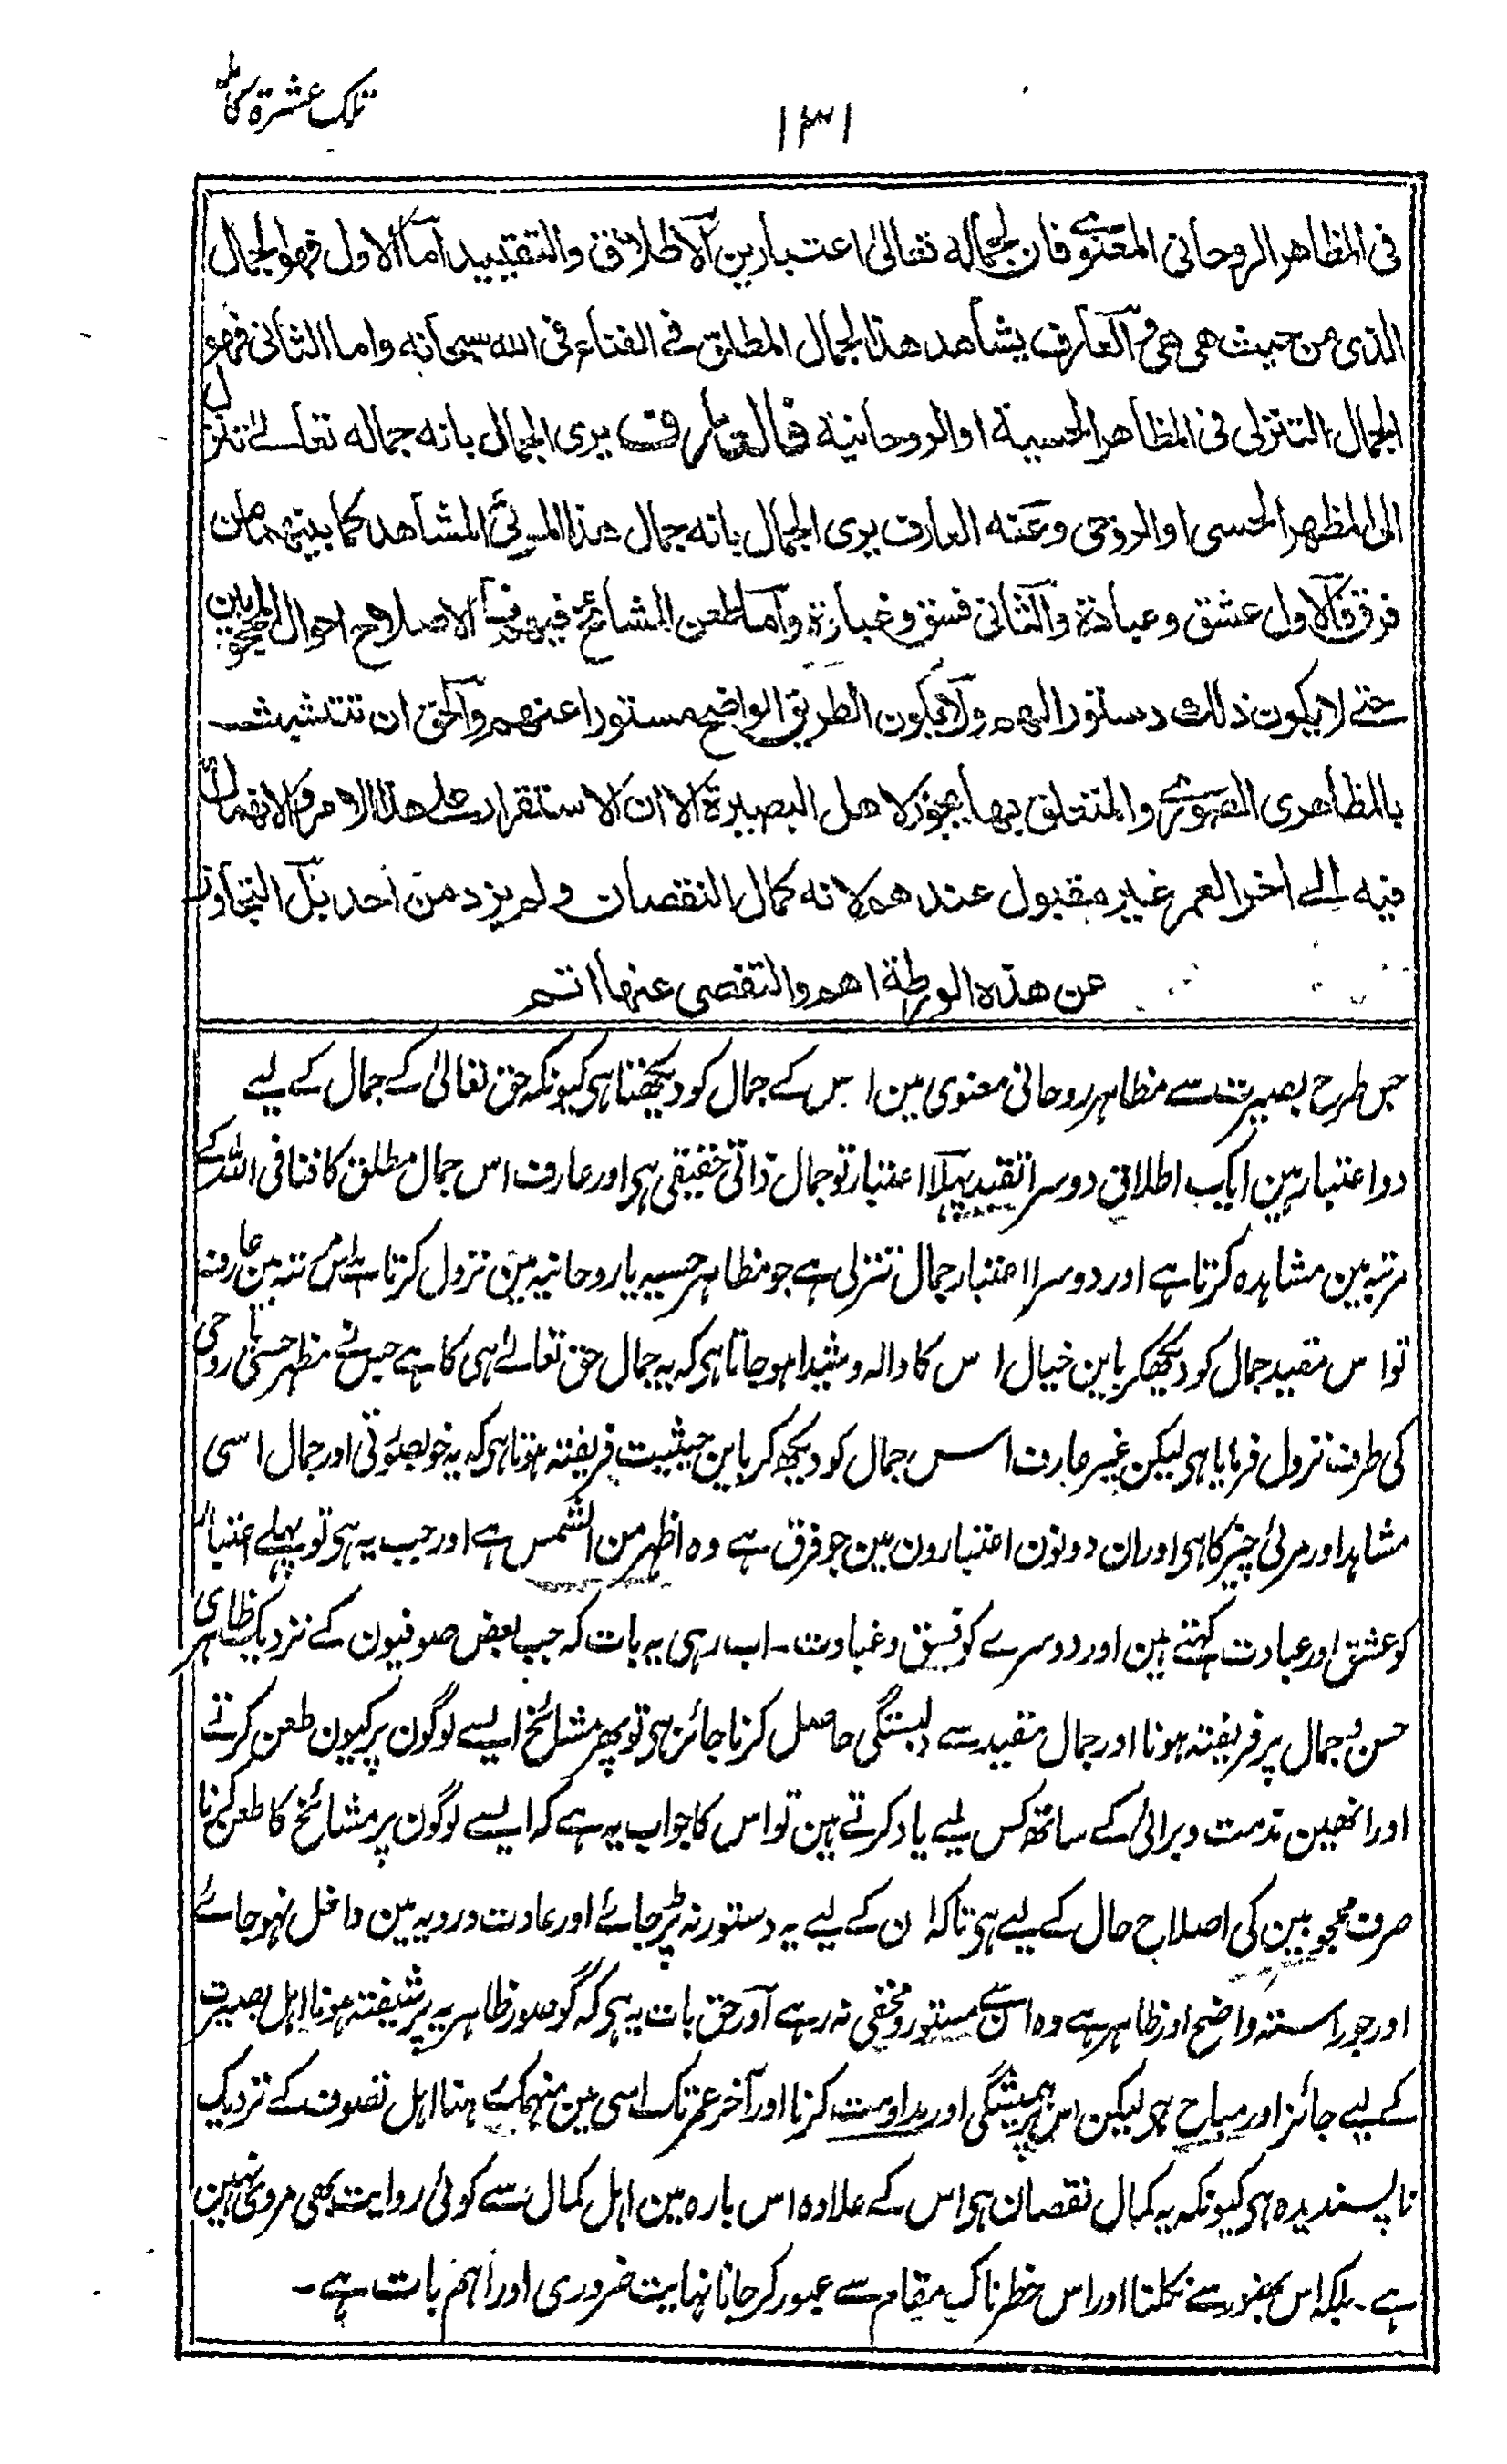 تلک عشرة کاملہ
۱۳۱
فی المظاهر الروحانی المعنوی فان لجماله تعالیٰ اعتبارین الاطلاق والتقیید اما الاول فهو الجمال
الذی من حیث هی هی و العارف یشاهد هذا الجمال المطلق فی الفناء فی الله سبحانه واما الثانی فهو
الجمال التنزلی فی المظاهر الحسیة او الروحانیة فالعارف یری الجمال بانه جماله تعالےٰ تنزل
الی المظهر الحسی او الروحی وغیره العارف یری الجمال بانه جمال هذا المرئی المشاهد کما بینهما من
فرق فالاول عشق وعبادة والثانی فسق وغباوة واما طعن المشائخ فیهم الاصلاح احوال المحجوبین
حتے لایکون ذلك دستورا لهم ولایکون الطریق الواضح مستورا عنهم والحق ان تتشبث
بالمظاهری الصوری والمتعلق بها یجوز لاهل البصیرة الا ان الاستقرار علے هذا الامر والانهماك
فیه الے اخر العمر غیر مقبول عندهم لانه کمال النقصان ولم یرد من احد بل التجاوز
عن هذه الورطة اهم والتفصی عنها اتم
جس طرح بصیرت سے مظاہر روحانی معنوی مین اس کے جمال کو دیکھتا ہی کیونکہ حق تعالیٰ کے جمال کے لیے
دو اعتبار ہین ایک اطلاق دوسرا تقیید پہلا اعتبار تو جمال ذاتی حقیقی ہی اور عارف اس جمال مطلق کا فنا فی اللہ کے
مرتبہ مین مشاہدہ کرتا ہے اور دوسرا اعتبار جمال تنزلی ہے جو مظاہر حسیہ یا روحانیہ مین نزول کرتا ہے اس مرتبہ مین عارف
تو اس مقید جمال کو دیکھکر باین خیال اس کا والہ و شیدا ہوجاتا ہی کہ یہ جمال حق تعالےٰ ہی کا ہے جس نے مظہر حسی یا روحی
کی طرف نزول فرمایا ہی لیکن غیر عارف اس جمال کو دیکھ کر باین حیثیت فریفتہ ہوتا ہی کہ یہ خوبصورتی اور جمال اسی
مشاہد اور مرئی چیز کا ہی اور ان دونون اعتبارون مین جو فرق ہے وہ اظہر من الشمس ہے اور جب یہ ہی تو پہلے اعتبار
کو عشق اور عبادت کہتے ہین اور دوسرے کو فسق و غباوت۔ اب رہی یہ بات کہ جب بعض صوفیون کے نزدیک ظاہری
حسن و جمال پر فریفتہ ہونا اور جمال مقید سے دلبستگی حاصل کرنا جائز ہی تو پھر مشائخ ایسے لوگون پر کیون طعن کرتے
اور انھین مذمت و برائی کے ساتھ کس لیے یاد کرتے ہین تو اس کا جواب یہ ہے کہ ایسے لوگون پر مشائخ کا طعن کرنا
صرف محجوبین کی اصلاح حال کے لیے ہی تاکہ ان کے لیے یہ دستور نہ پڑجائے اور عادت و رویہ مین داخل نہوجائے
اور جو راستہ واضح اور ظاہر ہے وہ ان سے مستور و مخفی نہ رہے اور حق بات یہ ہی کہ گو صور ظاہریہ پر شیفتہ ہونا اہل بصیرت
کے لیے جائز اور مباح ہی لیکن اس پر ہمیشگی اور مداومت کرنا اور آخر عمر تک اسی مین منہمک رہنا اہل تصوف کے نزدیک
ناپسندیدہ ہی کیونکہ یہ کمال نقصان ہی اس کے علاوہ اس بارہ مین اہل کمال سے کوئی روایت بھی مروی نہین
ہے۔ بلکہ اس بھنور سے نکلنا اور اس خطرناک مقام سے عبور کرجانا نہایت ضروری اور اہم بات ہے۔